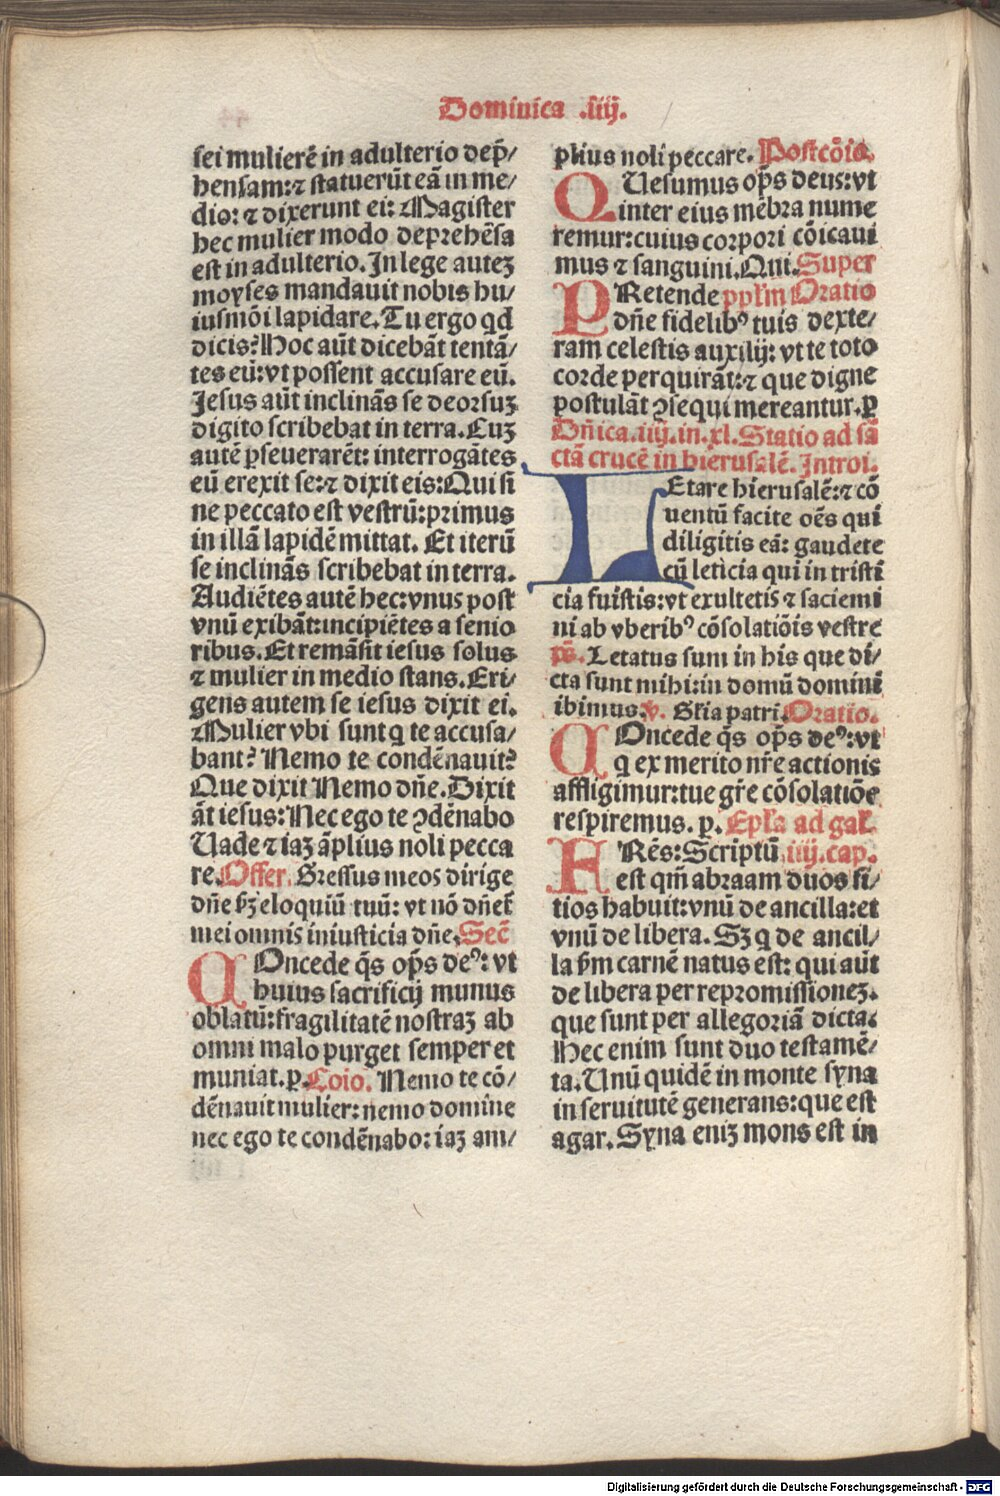 Dominica .iiij.
sei mulierē in adulterio dep̄/
hensam: ⁊ statuerūt eā in me/
dio: ⁊ dixerunt ei: Magister
hec mulier modo deprehēsa
est in adulterio. In lege autez
moyses mandauit nobis hu/
iusmōi lapidare. Tu ergo qd
dicis? Hoc aūt dicebāt tentā/
tes eū: vt possent accusare eū.
Jesus aūt inclinās se deorsuz
digito scribebat in terra. Cuz
autē ꝑseuerarēt: interrogātes
eū erexit se: ⁊ dixit eis: Qui si
ne peccato est vestrū: primus
in illā lapidē mittat. Et iterū
se inclinās scribebat in terra.
Audiētes autē hec: vnus post
vnū exibāt: incipiētes a senio
ribus. Et remāsit iesus solus
⁊ mulier in medio stans. Eri/
gens autem se iesus dixit ei.
Mulier vbi sunt q te accusa/
bant? Nemo te condēnauit?
Que dixit Nemo dn̄e. Dixit
āt iesus: Nec ego te ꝯdēnabo
Uade ⁊ iaz āplius noli pecca
re. Offer. Gressus meos dirige
dn̄e ẜz eloquiū tuū: vt nō dn̄et̄
mei omnis iniusticia dn̄e. Sec̄
COncede q̄s op̄s deꝰ: vt
huius sacrificij munus
oblatū: fragilitatē nostraz ab
omni malo purget semper et
muniat. p. Coīo. Nemo te cō/
dēnauit mulier: nemo domine
nec ego te condēnabo: iaz am/
plius noli peccare. Postcōio.
QUesumus op̄s deus: vt
inter eius mēbra nume
remur: cuius corpori cōicaui
mus ⁊ sanguini. Qui. Super
PRetende ppl'm Oratio
dn̄e fidelibꝰ tuis dexte/
ram celestis auxilij: vt te toto
corde perquirāt: ⁊ que digne
postulāt ꝯsequi mereantur. ꝑ
Dn̄ica .iiij. in .xl. Statio ad sā
ctā crucē in hierusalē. Introi.
LEtare hierusalē: ⁊ cō
uentū facite oēs qui
diligitis eā: gaudete
cū leticia qui in tristi
cia fuistis: vt exultetis ⁊ saciemi
ni ab vberibꝰ cōsolatiōis vestre
ps̄. Letatus sum in his que di/
cta sunt mihi: in domū domini
ibimus. v. Gl'ia patri. Oratio.
COncede q̄s op̄s deꝰ: vt
q ex merito nr̄e actionis
affligimur: tue gr̄e cōsolatiōe
respiremus. p. Epl'a ad gal'.
FRēs: Scriptū iiij. cap.
est qm̄ abraam duos fi/
lios habuit: vnū de ancilla: et
vnū de libera. Sz q de ancil/
la ẜm carnē natus est: qui aūt
de libera per repromissionez.
que sunt per allegoriā dicta.
Hec enim sunt duo testamē/
ta. Unū quidē in monte syna
in seruitutē generans: que est
agar. Syna eniz mons est in
Digitalisierung gefördert durch die Deutsche Forschungsgemeinschaft - DFG